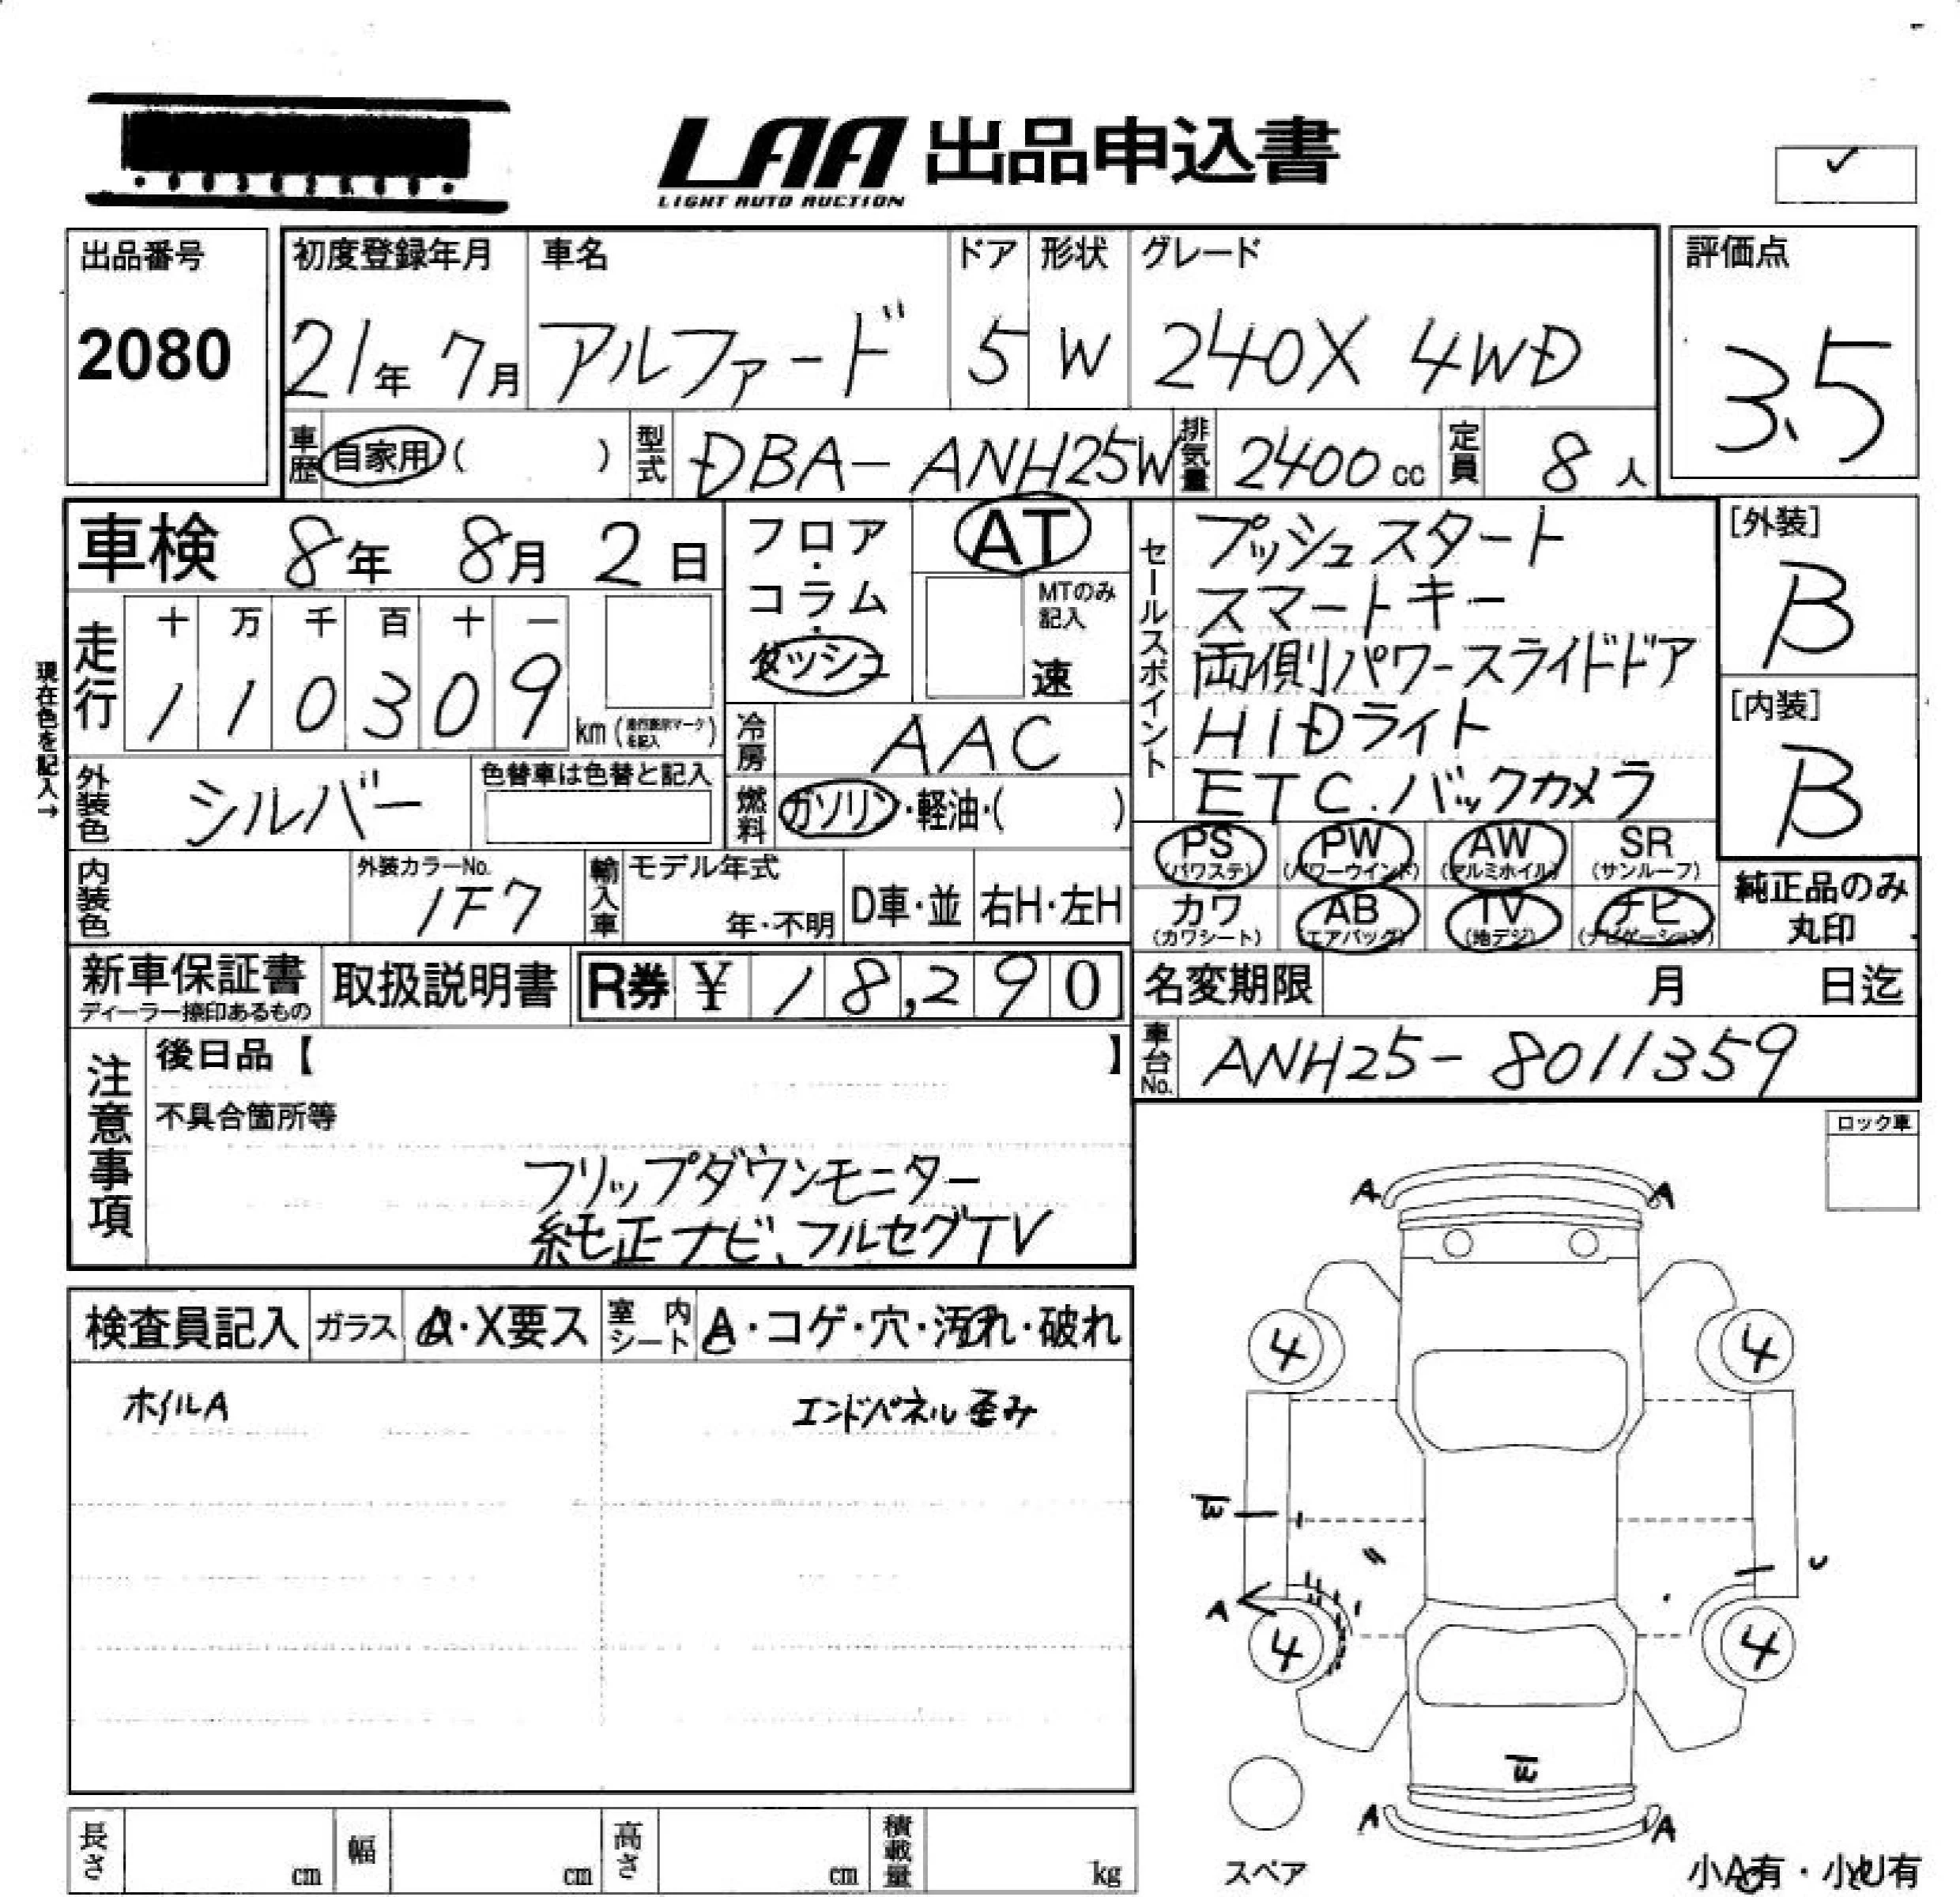 LAA 出品申込書
LIGHT AUTO AUCTION
✓
出品番号
2080
初度登録年月
21年 7月
車名
アルファード
ドア
5
形状
W
グレード
240X 4WD
評価点
3.5
車歴 自家用 ( )
型式 DBA-ANH25W
排気量 2400cc
定員 8人
車検 8年 8月 2日
フロア・コラム・ダッシュ
AT
MTのみ記入
速
セールスポイント
プッシュスタート
スマートキー
両側パワースライドドア
HIDライト
ETC.バックカメラ
[外装]
B
[内装]
B
現在色を記入→
走行
十 万 千 百 十 一
1 1 0 3 0 9 km
冷房 AAC
外装色 シルバー
色替車は色替と記入
燃料 ガソリン・軽油・( )
PS (パワステ)
PW (パワーウインド)
AW (アルミホイル)
SR (サンルーフ)
カワ (カワシート)
AB (エアバッグ)
TV (地デジ)
ナビ (ナビゲーション)
純正品のみ
丸印
内装色
外装カラーNo.
1F7
輸入車
モデル年式
年・不明
D車・並
右H・左H
新車保証書
ディーラー捺印あるもの
取扱説明書
R券 ¥ 18,290
名変期限 月 日迄
車台No. ANH25-8011359
注意事項
後日品【 】
不具合箇所等
フリップダウンモニター
純正ナビ、フルセグTV
ロック車
検査員記入
ガラス A・X要ス
室内シート A・コゲ・穴・汚れ・破れ
ホイルA
エンドパネル歪み
A A
4 4
U
A
4 4
A A
スペア
小A有・小U有
長さ cm
幅 cm
高さ cm
積載量 kg